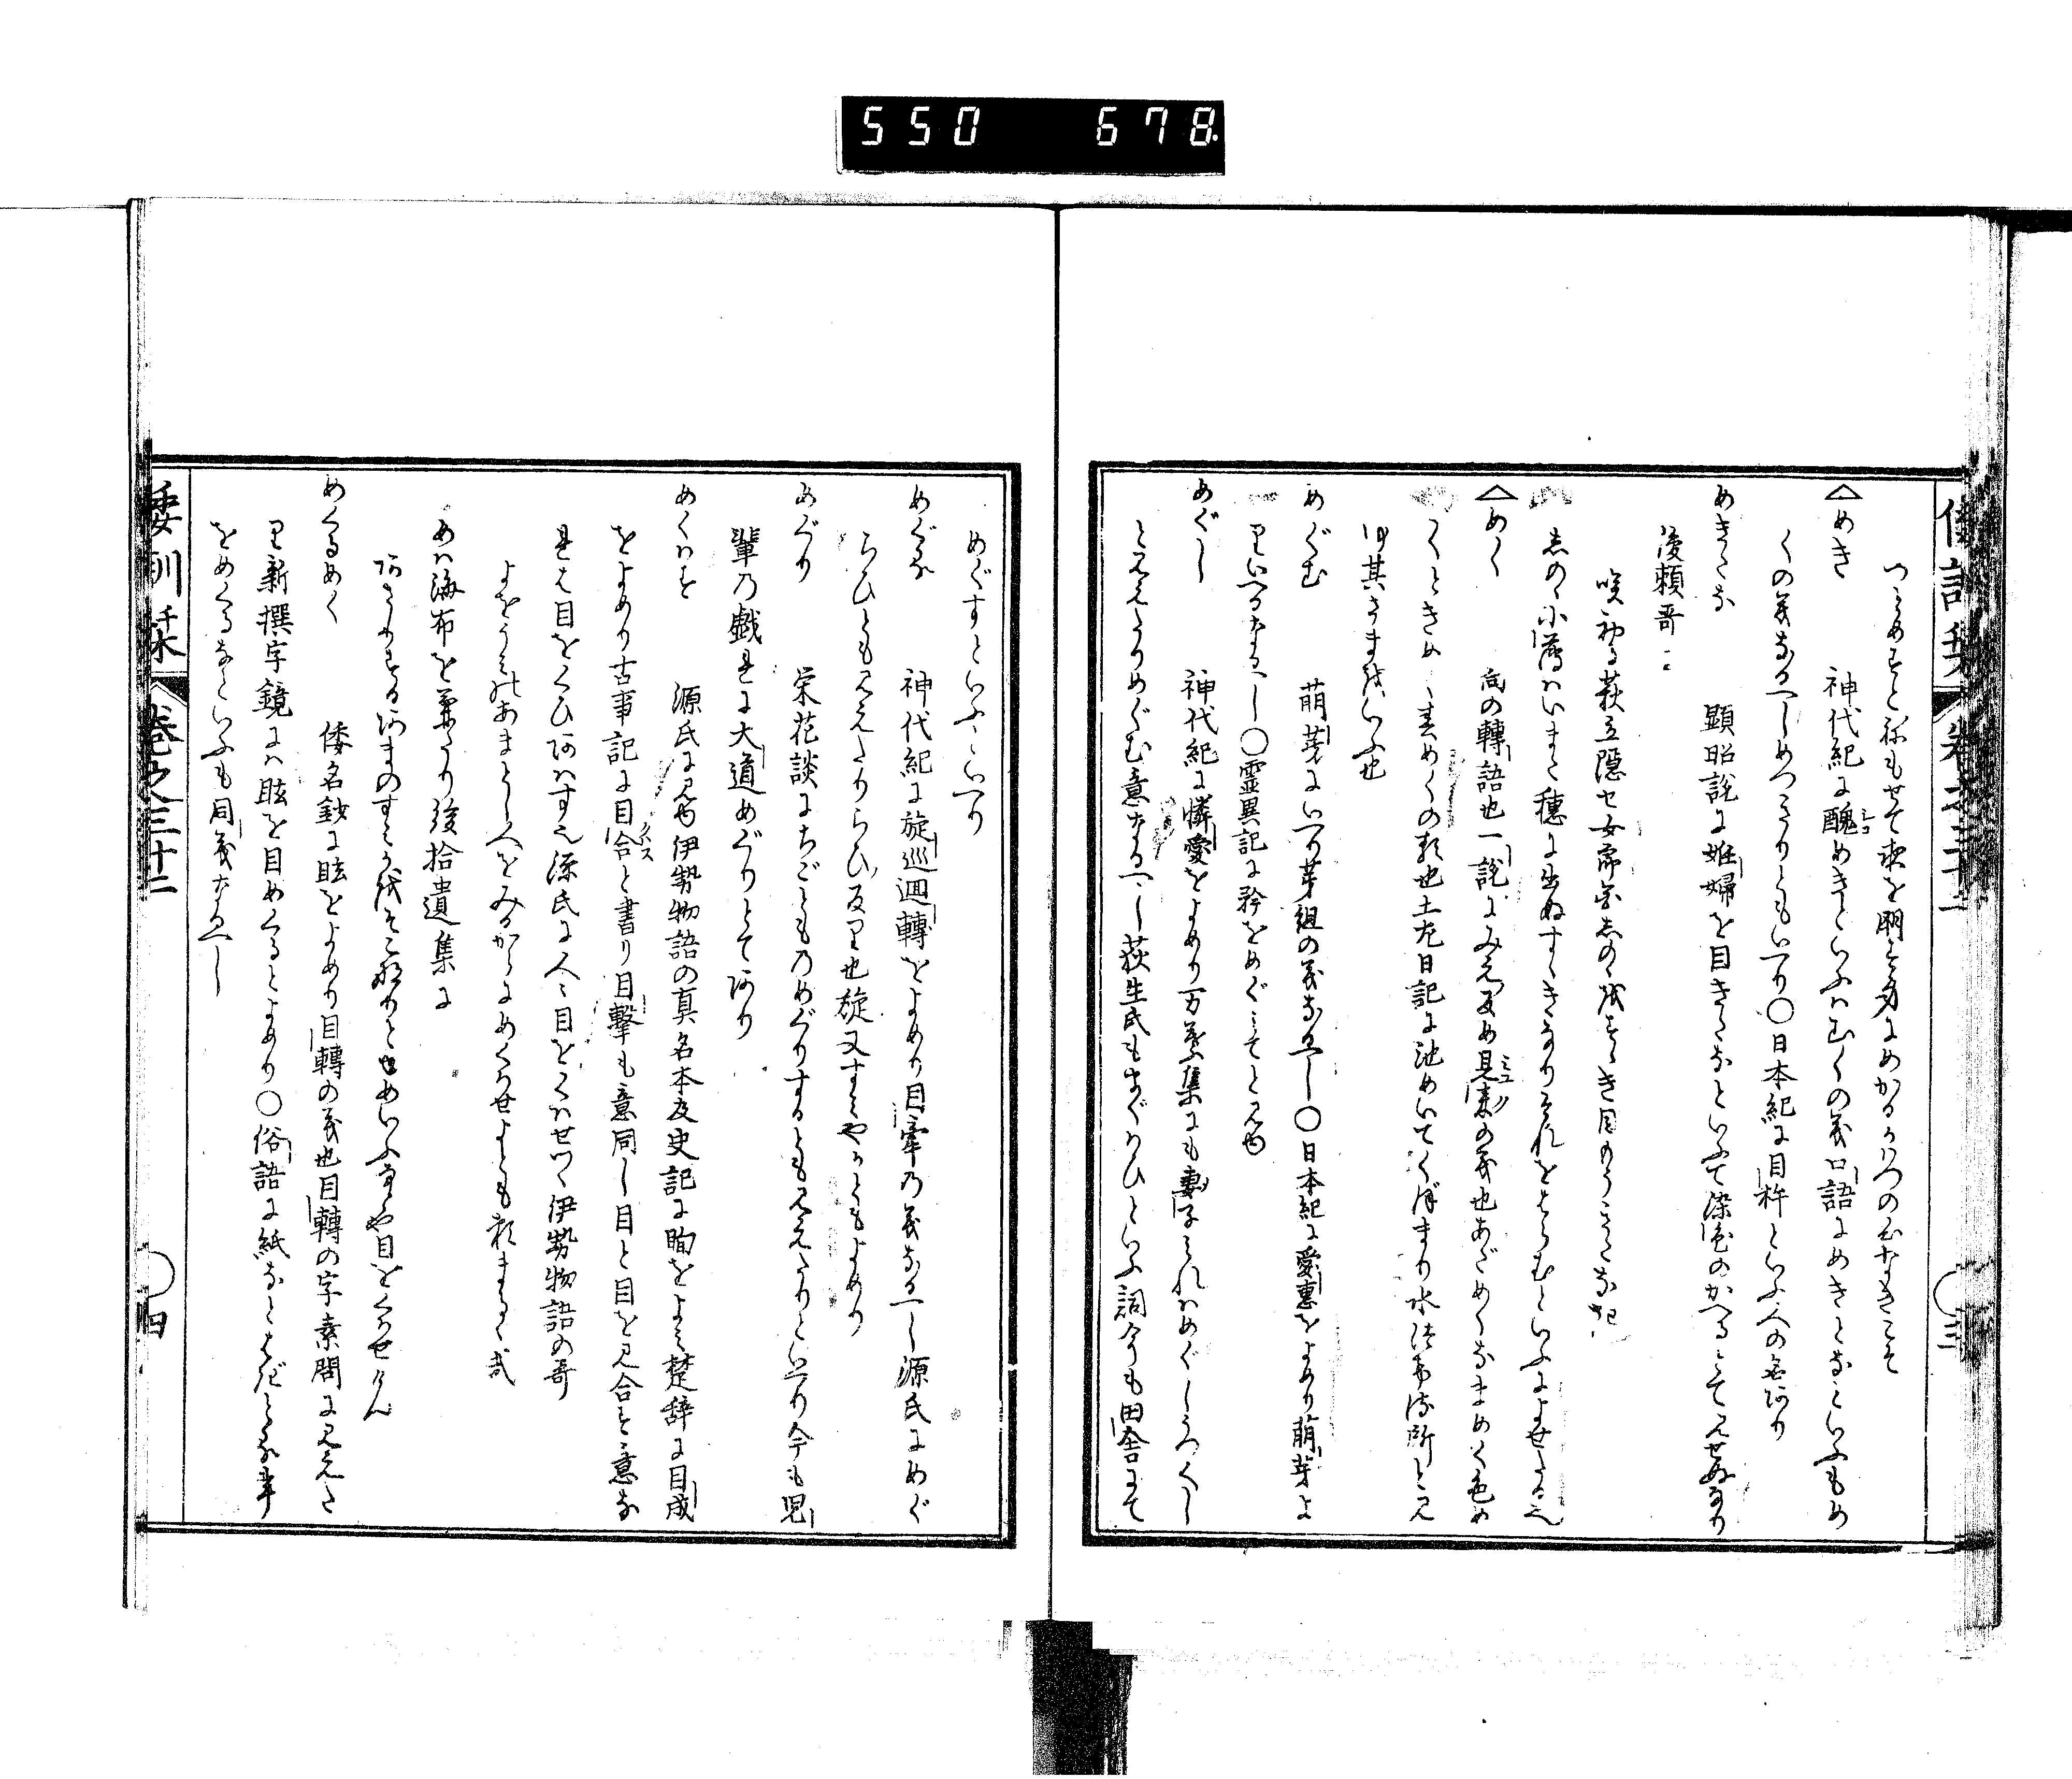 550 678
つとめすと称もせて夜を明す身にめかるかはつの心なきこそ
めき 神代紀に醜めきといふはむくの義口語にめきとなといふもめ
くの義なるへしめつきりともいへり〇日本紀に目杵といふ人の名あり
めきたな 顕昭説に姙婦を目きたなといふて染色のかへるとて見せぬなり
俊頼哥に
咲初る萩立隠せ女郎
しのゝ小薄はいまた穂に出ぬすゝきなりそれをはらむといふによせたる也
めく 向の轉語也一説にみえ反め見來の義也あだめくなまめく色め
くときめく春めくの類也土左日記に池めいてくぼまり水つける所と見
ゆ其さまをいふ也
めぐむ 萌芽にいへり芽組の義なるへし〇日本紀に愛惠をよめり萌芽よ
りいへるなるへし〇霊異記に矜をめぐみてと見ゆ
めぐし 神代紀に憐愛をよめり万葉集にも妻子みれはめぐしうつくし
と見えたりめぐむ意なるへし荻生氏もまぐはひといふ詞今も田舎にて
めぐすといふといへり
めぐる 神代紀に旋巡週轉をよめり目牽乃義なるへし源氏にめぐ
らひとも見えたりらひ反り也旋又すみやかともよめり
めぐり 栄花談にちごとも乃めぐりするとも見えたりといへり今も児
輩乃戯れに大道めぐりとてあり
めくはす 源氏に見ゆ伊勢物語の真名本及史記に眴をよみ楚辞に目成
をよめり古事記に目合と書り目撃も意同し目と目を見合す意な
れは目をくひあはす也源氏に人に目をくはせつゝ伊勢物語の哥
よをうみのあまとし人をみるからにめくはせよとも頼まるゝ哉
めは海布を兼たり後拾遺集に
あさりするあまのすみかをそこなりとゆめいふなとや目をくはせけん
めくるめく 倭名鈔に眩をよめり目轉の義也目轉の字素問に見えた
り新撰字鏡には眩を目めくるとよめり〇俗語に紙なとを
をめくるなといふも同義なるへし
倭訓栞 巻之三十二 三
倭訓栞 巻之三十二 四